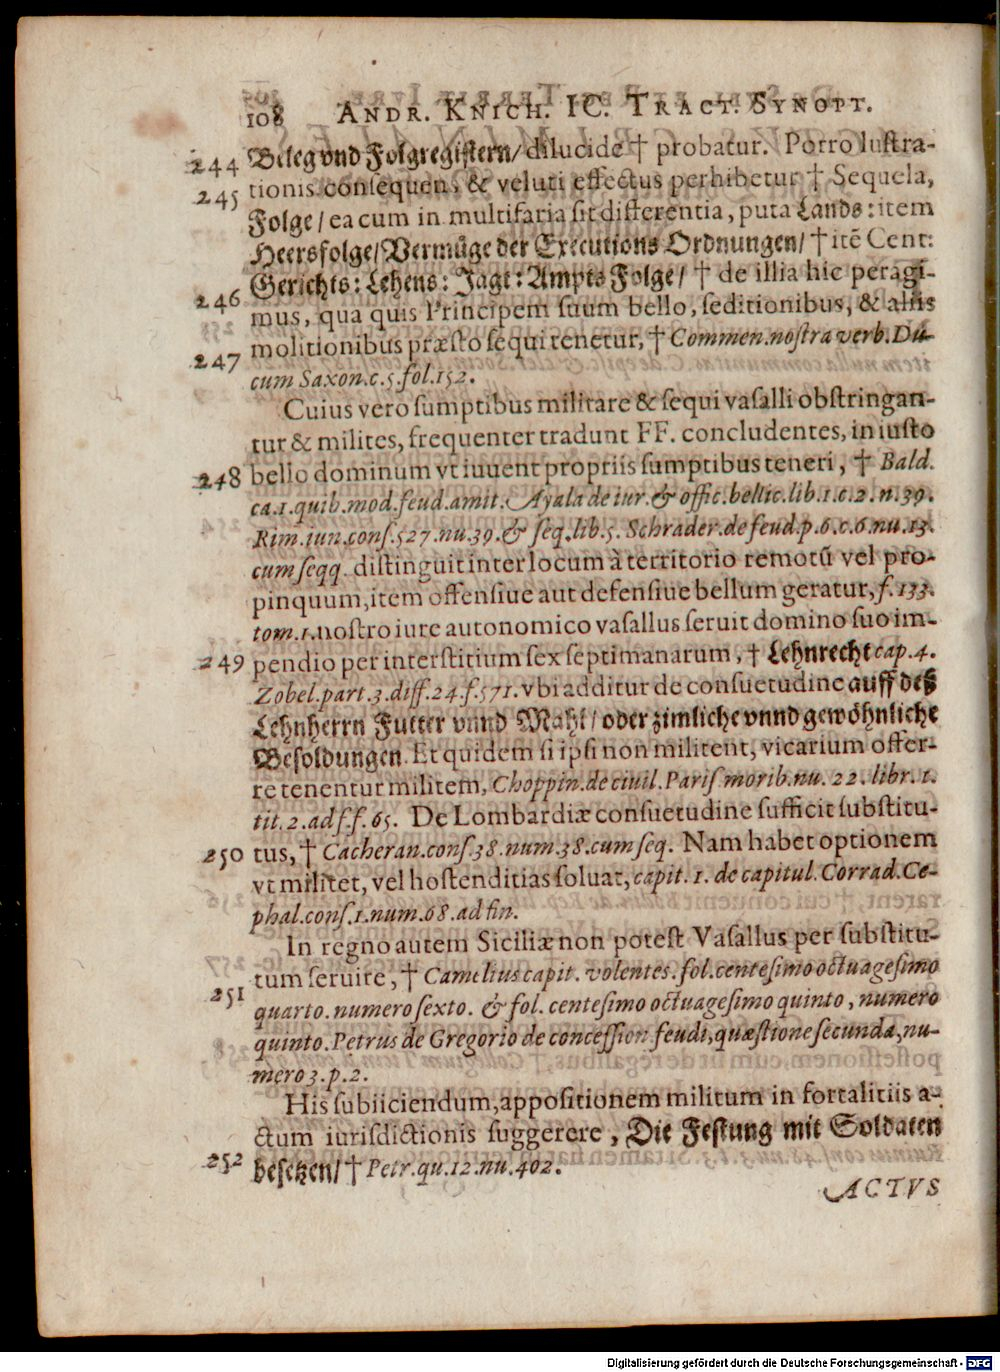 108 ANDR. KNICH. IC. TRACT. SYNOPT.
244 Beleg vnd Folgregistern/ dilucide † probatur. Porro lustra-
245 tionis consequens & veluti effectus perhibetur † Sequela,
Folge / ea cum in multifaria sit differentia, puta Lands: item
Heersfolge/ Vermüge der Executions Ordnungen/ † itē Cent:
Gerichts: Lehens: Jagt: Ampts Folge/ † de illia hic peragi-
246 mus, qua quis Principem suum bello, seditionibus, & aliis
247 molitionibus præsto sequi tenetur, † Commen. nostra verb. Du-
cum Saxon. c. 5. fol. 152.
Cuius vero sumptibus militare & sequi vasalli obstringan-
tur & milites, frequenter tradunt FF. concludentes, in iusto
248 bello dominum vt iuuent propriis sumptibus teneri, † Bald.
ca. 1. quib. mod. feud. amit. Ayala de iur. & offic. bellic. lib. 1. c. 2. n. 39.
Rim. iun. cons. 527. nu. 39. & seq. lib. 5. Schrader. de feud. p. 6. c. 6. nu. 13.
cum seqq. distinguit inter locum à territorio remotū vel pro-
pinquum, item offensiue aut defensiue bellum geratur, f. 133.
tom. 1. nostro iure autonomico vasallus seruit domino suo im-
249 pendio per interstitium sex septimanarum, † Lehnrecht cap. 4.
Zobel. part. 3. diff. 24. f. 571. vbi additur de consuetudine auff deß
Lehnherrn Futter vnnd Mahl/ oder zimliche vnnd gewöhnliche
Besoldungen. Et quidem si ipsi non militent, vicarium offer-
re tenentur militem, Choppin. de ciuil. Paris. morib. nu. 22. libr. 1.
tit. 2. ad ff. 65. De Lombardiæ consuetudine sufficit substitu-
250 tus, † Cacheran. cons. 38. num. 38. cum seq. Nam habet optionem
vt militet, vel hostenditias soluat, capit. 1. de capitul. Corrad. Ce-
phal. cons. 1. num. 68. ad fin.
In regno autem Siciliæ non potest Vasallus per substitu-
tum seruire, † Camelius capit. volentes. fol. centesimo octuagesimo
251 quarto. numero sexto. & fol. centesimo octuagesimo quinto, numero
quinto. Petrus de Gregorio de concession. feudi, quæstione secunda, nu-
mero 3. p. 2.
His subiiciendum, appositionem militum in fortalitiis a-
ctum iurisdictionis suggerere, Die Festung mit Soldaten
252 besetzen/ † Petr. qu. 12. nu. 402.
ACTVS
Digitalisierung gefördert durch die Deutsche Forschungsgemeinschaft - DFG